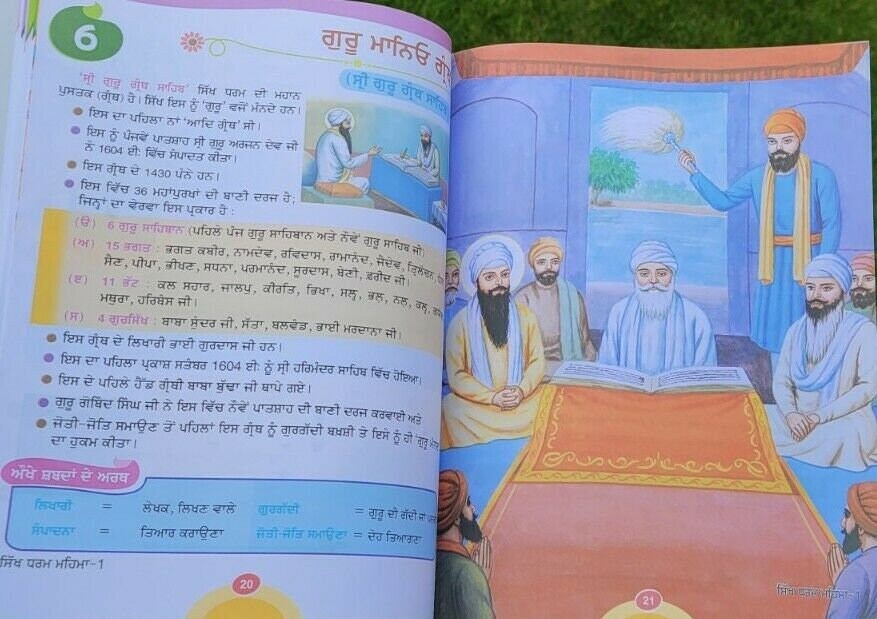 6
ਗੁਰੂ ਮਾਨਿਓ ਗ੍ਰੰਥ
(ਸ੍ਰੀ ਗੁਰੂ ਗ੍ਰੰਥ ਸਾਹਿਬ
'ਸ੍ਰੀ ਗੁਰੂ ਗ੍ਰੰਥ ਸਾਹਿਬ' ਸਿੱਖ ਧਰਮ ਦੀ ਮਹਾਨ
ਪੁਸਤਕ (ਗ੍ਰੰਥ) ਹੈ। ਸਿੱਖ ਇਸ ਨੂੰ 'ਗੁਰੂ' ਵਜੋਂ ਮੰਨਦੇ ਹਨ।
ਇਸ ਦਾ ਪਹਿਲਾ ਨਾਂ 'ਆਦਿ ਗ੍ਰੰਥ' ਸੀ।
ਇਸ ਨੂੰ ਪੰਜਵੇਂ ਪਾਤਸ਼ਾਹ ਸ੍ਰੀ ਗੁਰੂ ਅਰਜਨ ਦੇਵ ਜੀ
ਨੇ 1604 ਈ: ਵਿੱਚ ਸੰਪਾਦਤ ਕੀਤਾ।
ਇਸ ਗ੍ਰੰਥ ਦੇ 1430 ਪੰਨੇ ਹਨ।
ਇਸ ਵਿੱਚ 36 ਮਹਾਂਪੁਰਖਾਂ ਦੀ ਬਾਣੀ ਦਰਜ ਹੈ;
ਜਿਨ੍ਹਾਂ ਦਾ ਵੇਰਵਾ ਇਸ ਪ੍ਰਕਾਰ ਹੈ :
(ੳ) 6 ਗੁਰੂ ਸਾਹਿਬਾਨ (ਪਹਿਲੇ ਪੰਜ ਗੁਰੂ ਸਾਹਿਬਾਨ ਅਤੇ ਨੌਵੇਂ ਗੁਰੂ ਸਾਹਿਬ ਜੀ)
(ਅ) 15 ਭਗਤ : ਭਗਤ ਕਬੀਰ, ਨਾਮਦੇਵ, ਰਵਿਦਾਸ, ਰਾਮਾਨੰਦ, ਜੈਦੇਵ, ਤ੍ਰਿਲੋਚਨ,
ਸੈਣ, ਪੀਪਾ, ਭੀਖਣ, ਸਧਨਾ, ਪਰਮਾਨੰਦ, ਸੂਰਦਾਸ, ਬੇਣੀ, ਫ਼ਰੀਦ ਜੀ।
(ੲ) 11 ਭੱਟ : ਕਲ ਸਹਾਰ, ਜਾਲਪੁ, ਕੀਰਤਿ, ਭਿਖਾ, ਸਲ੍ਹ, ਭਲ੍ਹ, ਨਲ੍ਹ, ਕਲ੍ਹ,
ਮਥੁਰਾ, ਹਰਿਬੰਸ ਜੀ।
(ਸ) 4 ਗੁਰਸਿੱਖ : ਬਾਬਾ ਸੁੰਦਰ ਜੀ, ਸੱਤਾ, ਬਲਵੰਡ, ਭਾਈ ਮਰਦਾਨਾ ਜੀ।
ਇਸ ਗ੍ਰੰਥ ਦੇ ਲਿਖਾਰੀ ਭਾਈ ਗੁਰਦਾਸ ਜੀ ਹਨ।
ਇਸ ਦਾ ਪਹਿਲਾ ਪ੍ਰਕਾਸ਼ ਸਤੰਬਰ 1604 ਈ: ਨੂੰ ਸ੍ਰੀ ਹਰਿਮੰਦਰ ਸਾਹਿਬ ਵਿੱਚ ਹੋਇਆ।
ਇਸ ਦੇ ਪਹਿਲੇ ਹੈੱਡ ਗ੍ਰੰਥੀ ਬਾਬਾ ਬੁੱਢਾ ਜੀ ਥਾਪੇ ਗਏ।
ਗੁਰੂ ਗੋਬਿੰਦ ਸਿੰਘ ਜੀ ਨੇ ਇਸ ਵਿੱਚ ਨੌਵੇਂ ਪਾਤਸ਼ਾਹ ਦੀ ਬਾਣੀ ਦਰਜ ਕਰਵਾਈ ਅਤੇ
ਜੋਤੀ-ਜੋਤਿ ਸਮਾਉਣ ਤੋਂ ਪਹਿਲਾਂ ਇਸ ਗ੍ਰੰਥ ਨੂੰ ਗੁਰਗੱਦੀ ਬਖ਼ਸ਼ੀ ਤੇ ਇਸੇ ਨੂੰ ਹੀ 'ਗੁਰੂ
ਦਾ ਹੁਕਮ ਕੀਤਾ।
ਔਖੇ ਸ਼ਬਦਾਂ ਦੇ ਅਰਥ
ਲਿਖਾਰੀ = ਲੇਖਕ, ਲਿਖਣ ਵਾਲੇ ਗੁਰਗੱਦੀ = ਗੁਰੂ ਦੀ ਗੱਦੀ ਜਾਂ
ਸੰਪਾਦਨਾ = ਤਿਆਰ ਕਰਾਉਣਾ ਜੋਤੀ-ਜੋਤਿ ਸਮਾਉਣਾ = ਦੇਹ ਤਿਆਗਣਾ
ਸਿੱਖ ਧਰਮ ਮਹਿਮਾ-1
20
21
ਸਿੱਖ ਧਰਮ ਮਹਿਮਾ-1